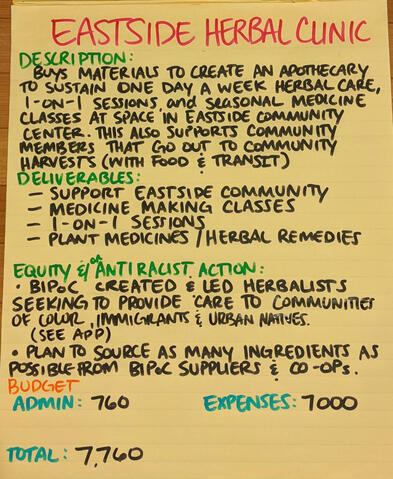 EASTSIDE HERBAL CLINIC
DESCRIPTION:
BUYS MATERIALS TO CREATE AN APOTHECARY
TO SUSTAIN ONE DAY A WEEK HERBAL CARE,
1-ON-1 SESSIONS, and SEASONAL MEDICINE
CLASSES AT SPACE IN EASTSIDE COMMUNITY
CENTER. THIS ALSO SUPPORTS COMMUNITY
MEMBERS THAT GO OUT TO COMMUNITY
HARVESTS (WITH FOOD & TRANSIT)
DELIVERABLES:
— SUPPORT EASTSIDE COMMUNITY
— MEDICINE MAKING CLASSES
— 1-ON-1 SESSIONS
— PLANT MEDICINES / HERBAL REMEDIES
EQUITY &/OR ANTIRACIST ACTION:
• BIPOC CREATED & LED HERBALISTS
SEEKING TO PROVIDE CARE TO COMMUNITIES
OF COLOR, IMMIGRANTS & URBAN NATIVES.
(SEE APP)
• PLAN TO SOURCE AS MANY INGREDIENTS AS
POSSIBLE FROM BIPOC SUPPLIERS & CO-OPS.
BUDGET
ADMIN: 760 EXPENSES: 7000
TOTAL: 7,760